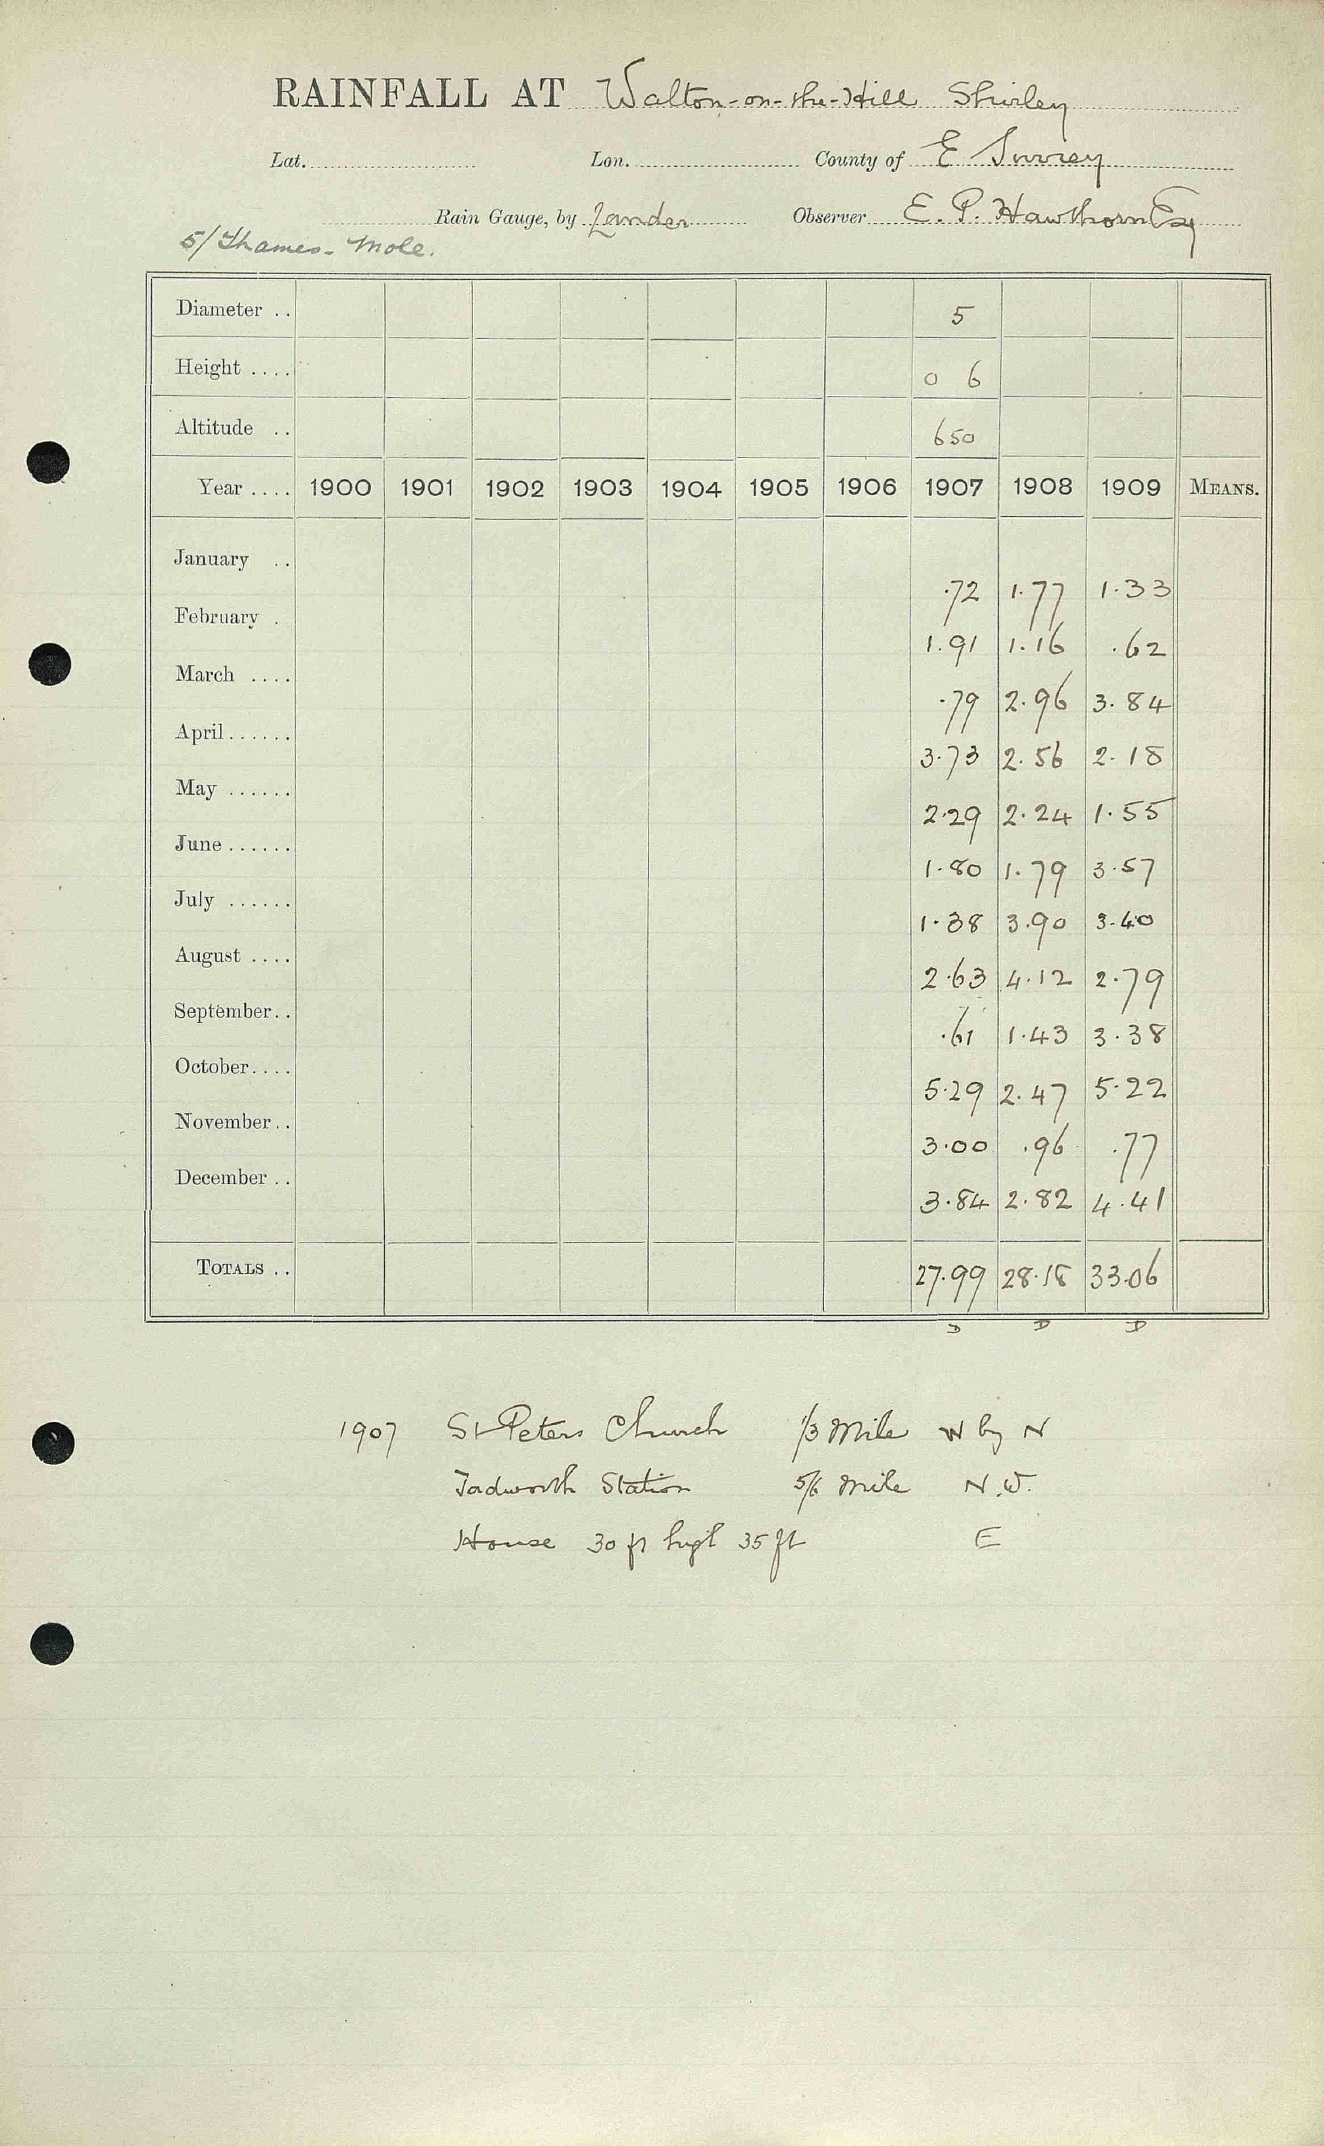 RAINFALL AT Walton-on-the-Hill Shirley
Lat. Lon. County of E Surrey
Rain Gauge, by Lander Observer E. P. Hawthorn Esq
5/ Thames - Mole.
Diameter .. 5
Height .... 0 6
Altitude .. 650
Year .... 1900 1901 1902 1903 1904 1905 1906 1907 1908 1909 MEANS.
January .. .72 1.77 1.33
February . 1.91 1.16 .62
March .... .79 2.96 3.84
April...... 3.73 2.56 2.18
May ...... 2.29 2.24 1.55
June ...... 1.80 1.79 3.57
July ...... 1.38 3.90 3.40
August .... 2.63 4.12 2.79
September.. .61 1.43 3.38
October.... 5.29 2.47 5.22
November.. 3.00 .96 .77
December .. 3.84 2.82 4.41
TOTALS .. 27.99 28.18 33.06
D D D
1907 St Peters Church 1/3 Mile W by N
Tadworth Station 5/6 Mile N.W.
House 30 ft high 35 ft E